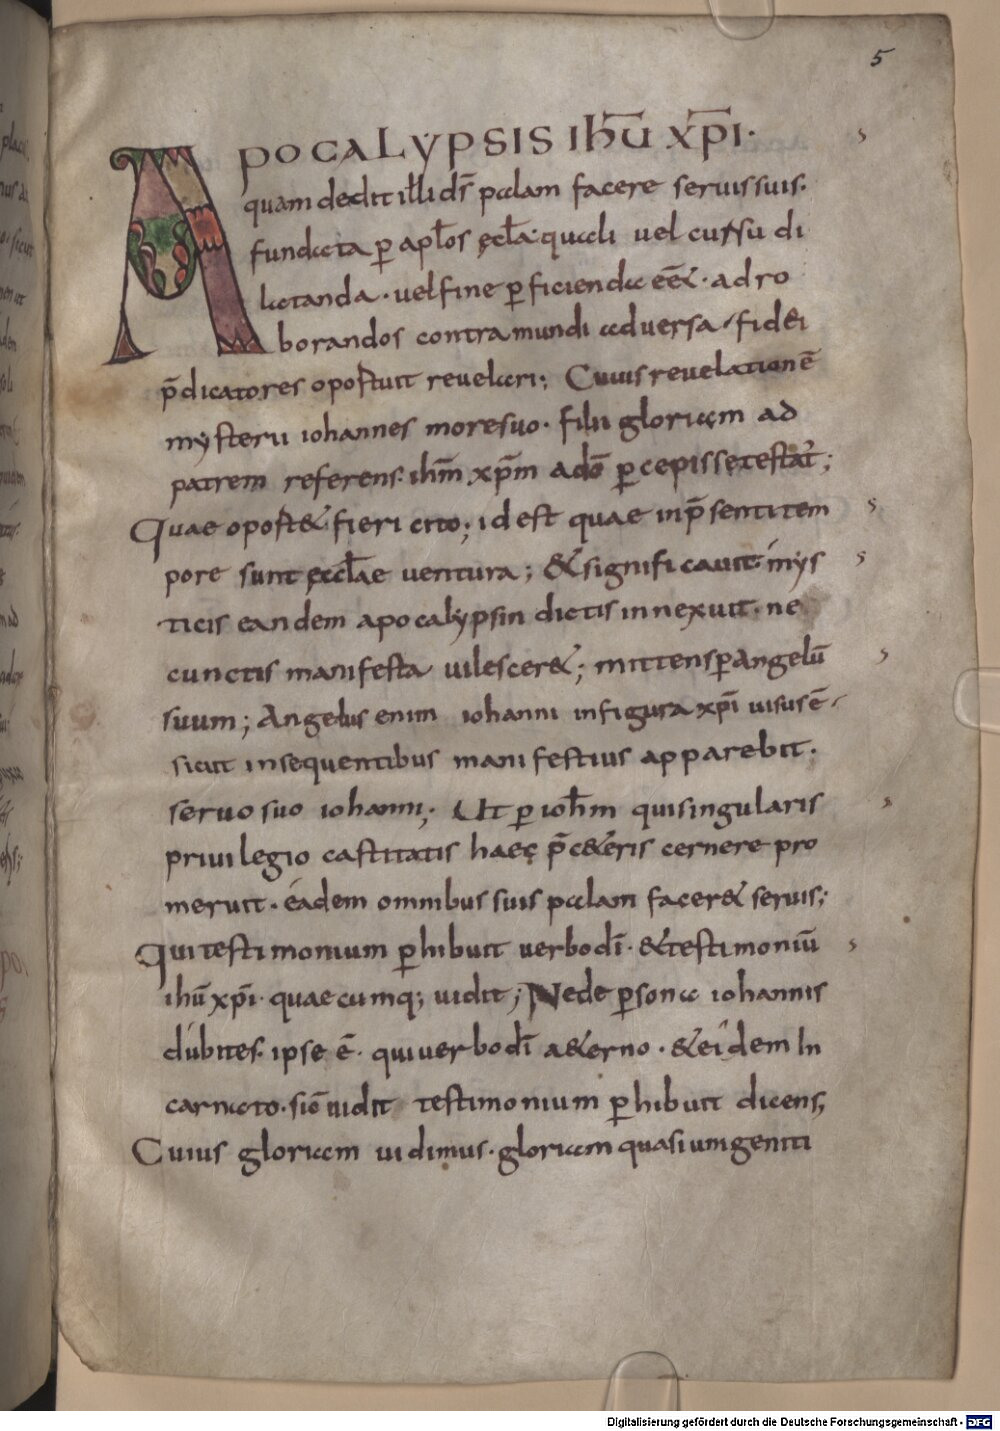 5
APOCALYPSIS IHŪ XP̄I·
quam dedit illi d̄s palam facere seruis suis·
fundata p̄ apl̄os ęcl̄a· quali uel cursu di
latanda· uel fine p̄ficienda eēt· ad ro
borandos contra mundi aduersa· fidei
p̄dicatores oportuit reuelari; Cuius reuelationē
mysterii iohannes more suo· filii gloriam ad
patrem referens· ihm̄ xp̄m a dō p̄cepisse testat̄;
Quae oport& fieri cito; id est quae in p̄senti tem
pore sunt ęccl̄ae uentura; & significauit· mys
ticis eandem apocalypsin dictis innexuit· ne
cunctis manifesta uilescer&; mittens p̄ Angelū
suum; Angelus enim iohanni in figura xp̄i uisus ē·
sicut insequentibus manifestius apparebit·
seruo suo iohanni; Ut p̄ ioh̄m qui singularis
priuilegio castitatis haec p̄ c&eris cernere pro
meruit· eadem omnibus suis palam facer& seruis;
Qui testimonium p̄hibuit uerbo dī· & testimoniū
ihū xp̄i· quaecumq; uidit; Ne de p̄sona iohannis
dubites· ipse ē· qui uerbo dī a&erno· & eidem In
carnato· sic̄ uidit testimonium p̄hibuit dicens;
Cuius gloriam uidimus· gloriam quasi unigeniti
Digitalisierung gefördert durch die Deutsche Forschungsgemeinschaft - DFG